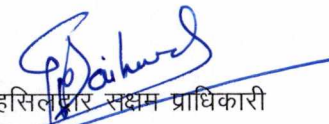 हसिलदार सक्षम प्राधिकारी